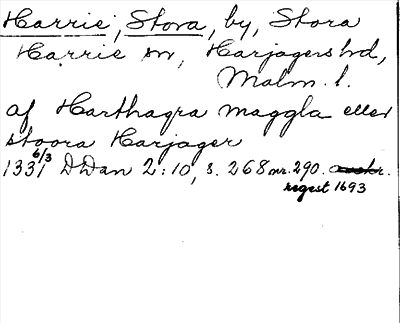 Harrie, Stora, by, Stora
Harrie sn, Harjagers hd,
Malm. l.
af Harthagra maggla eller
stoora Harjager
1331 6/3 DDan 2:10, s. 268 nr. 290.
regest 1693